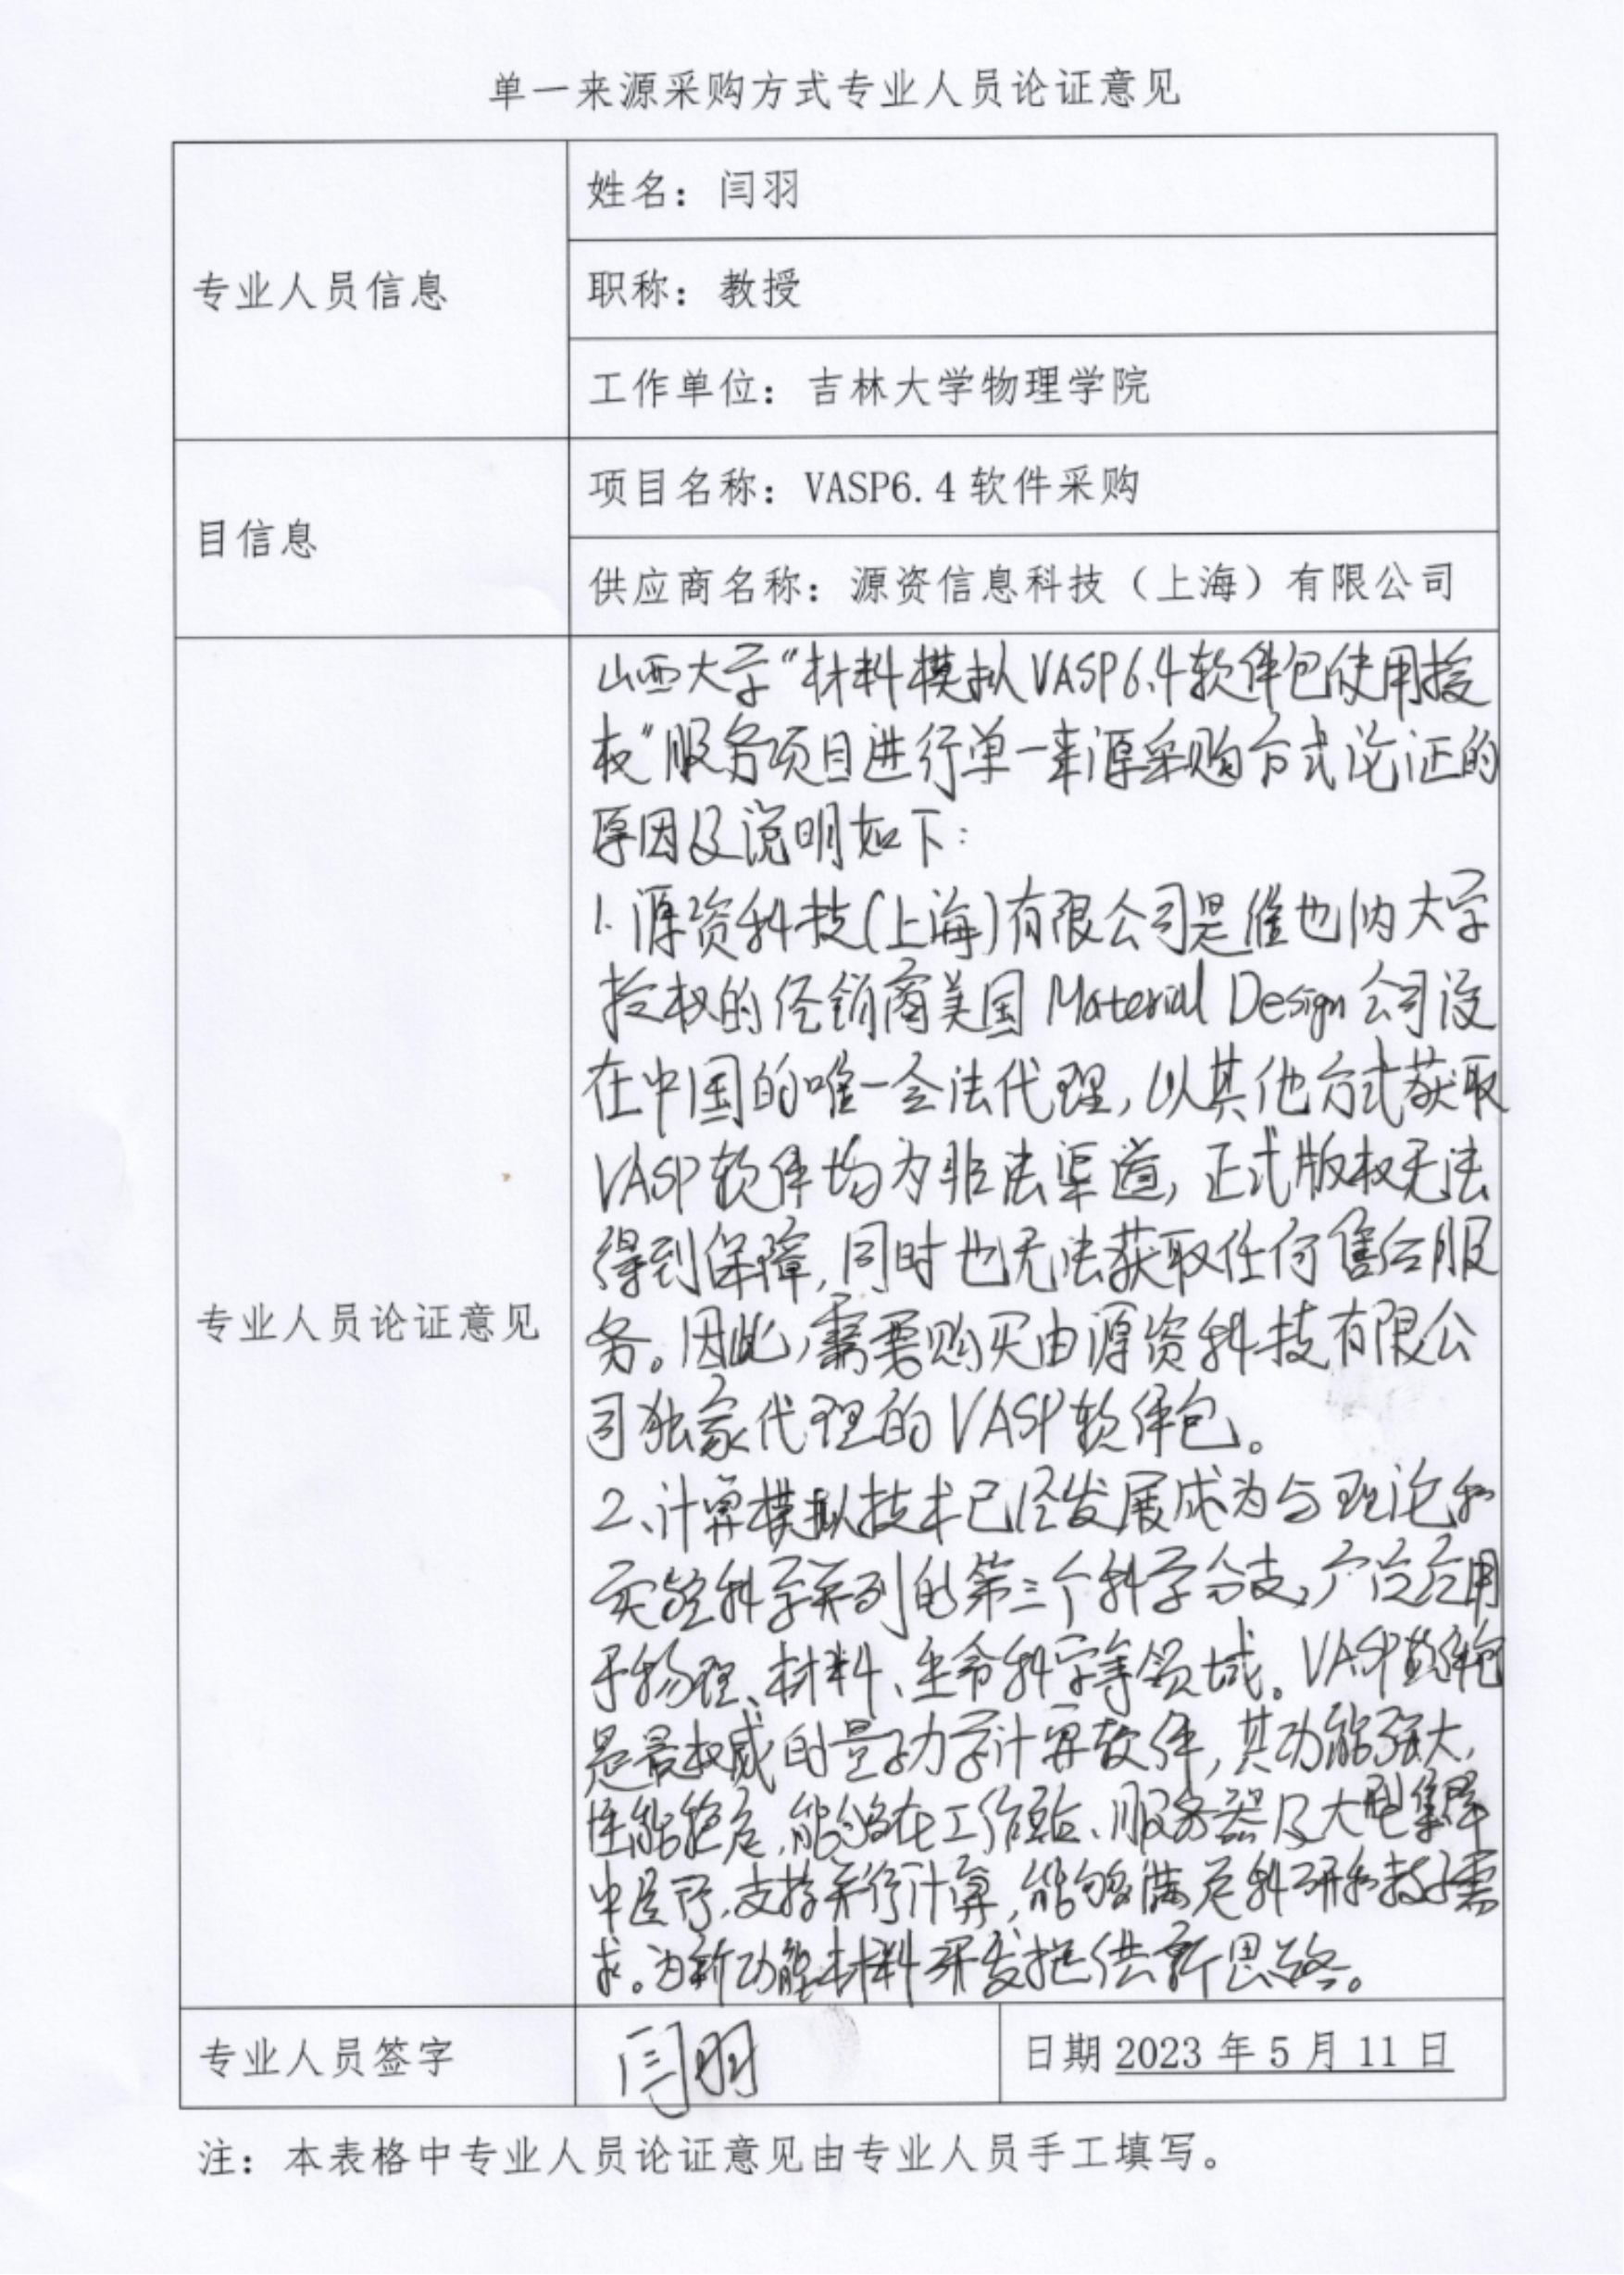 单一来源采购方式专业人员论证意见
专业人员信息
姓名：闫羽
职称：教授
工作单位：吉林大学物理学院
目信息
项目名称：VASP6.4软件采购
供应商名称：源资信息科技（上海）有限公司
专业人员论证意见
山西大学“材料模拟VASP6.4软件包使用授
权”服务项目进行单一来源采购方式论证的
原因及说明如下：
1.源资科技(上海)有限公司是维也纳大学
授权的经销商美国Material Design公司设
在中国的唯一合法代理，以其他方式获取
VASP软件均为非法渠道，正式版权无法
得到保障，同时也无法获取任何售后服
务。因此，需要购买由源资科技有限公
司独家代理的VASP软件包。
2、计算模拟技术已经发展成为与理论和
实验科学并列的第三个科学分支，广泛应用
于物理、材料、生命科学等领域。VASP软件包
是最权威的量子力学计算软件，其功能强大，
性能稳定，能够在工作站、服务器及大型集群
中运行，支持并行计算，能够满足科研和教学需
求。为新功能材料开发提供新思路。
专业人员签字
闫羽
日期 2023 年 5 月 11 日
注：本表格中专业人员论证意见由专业人员手工填写。